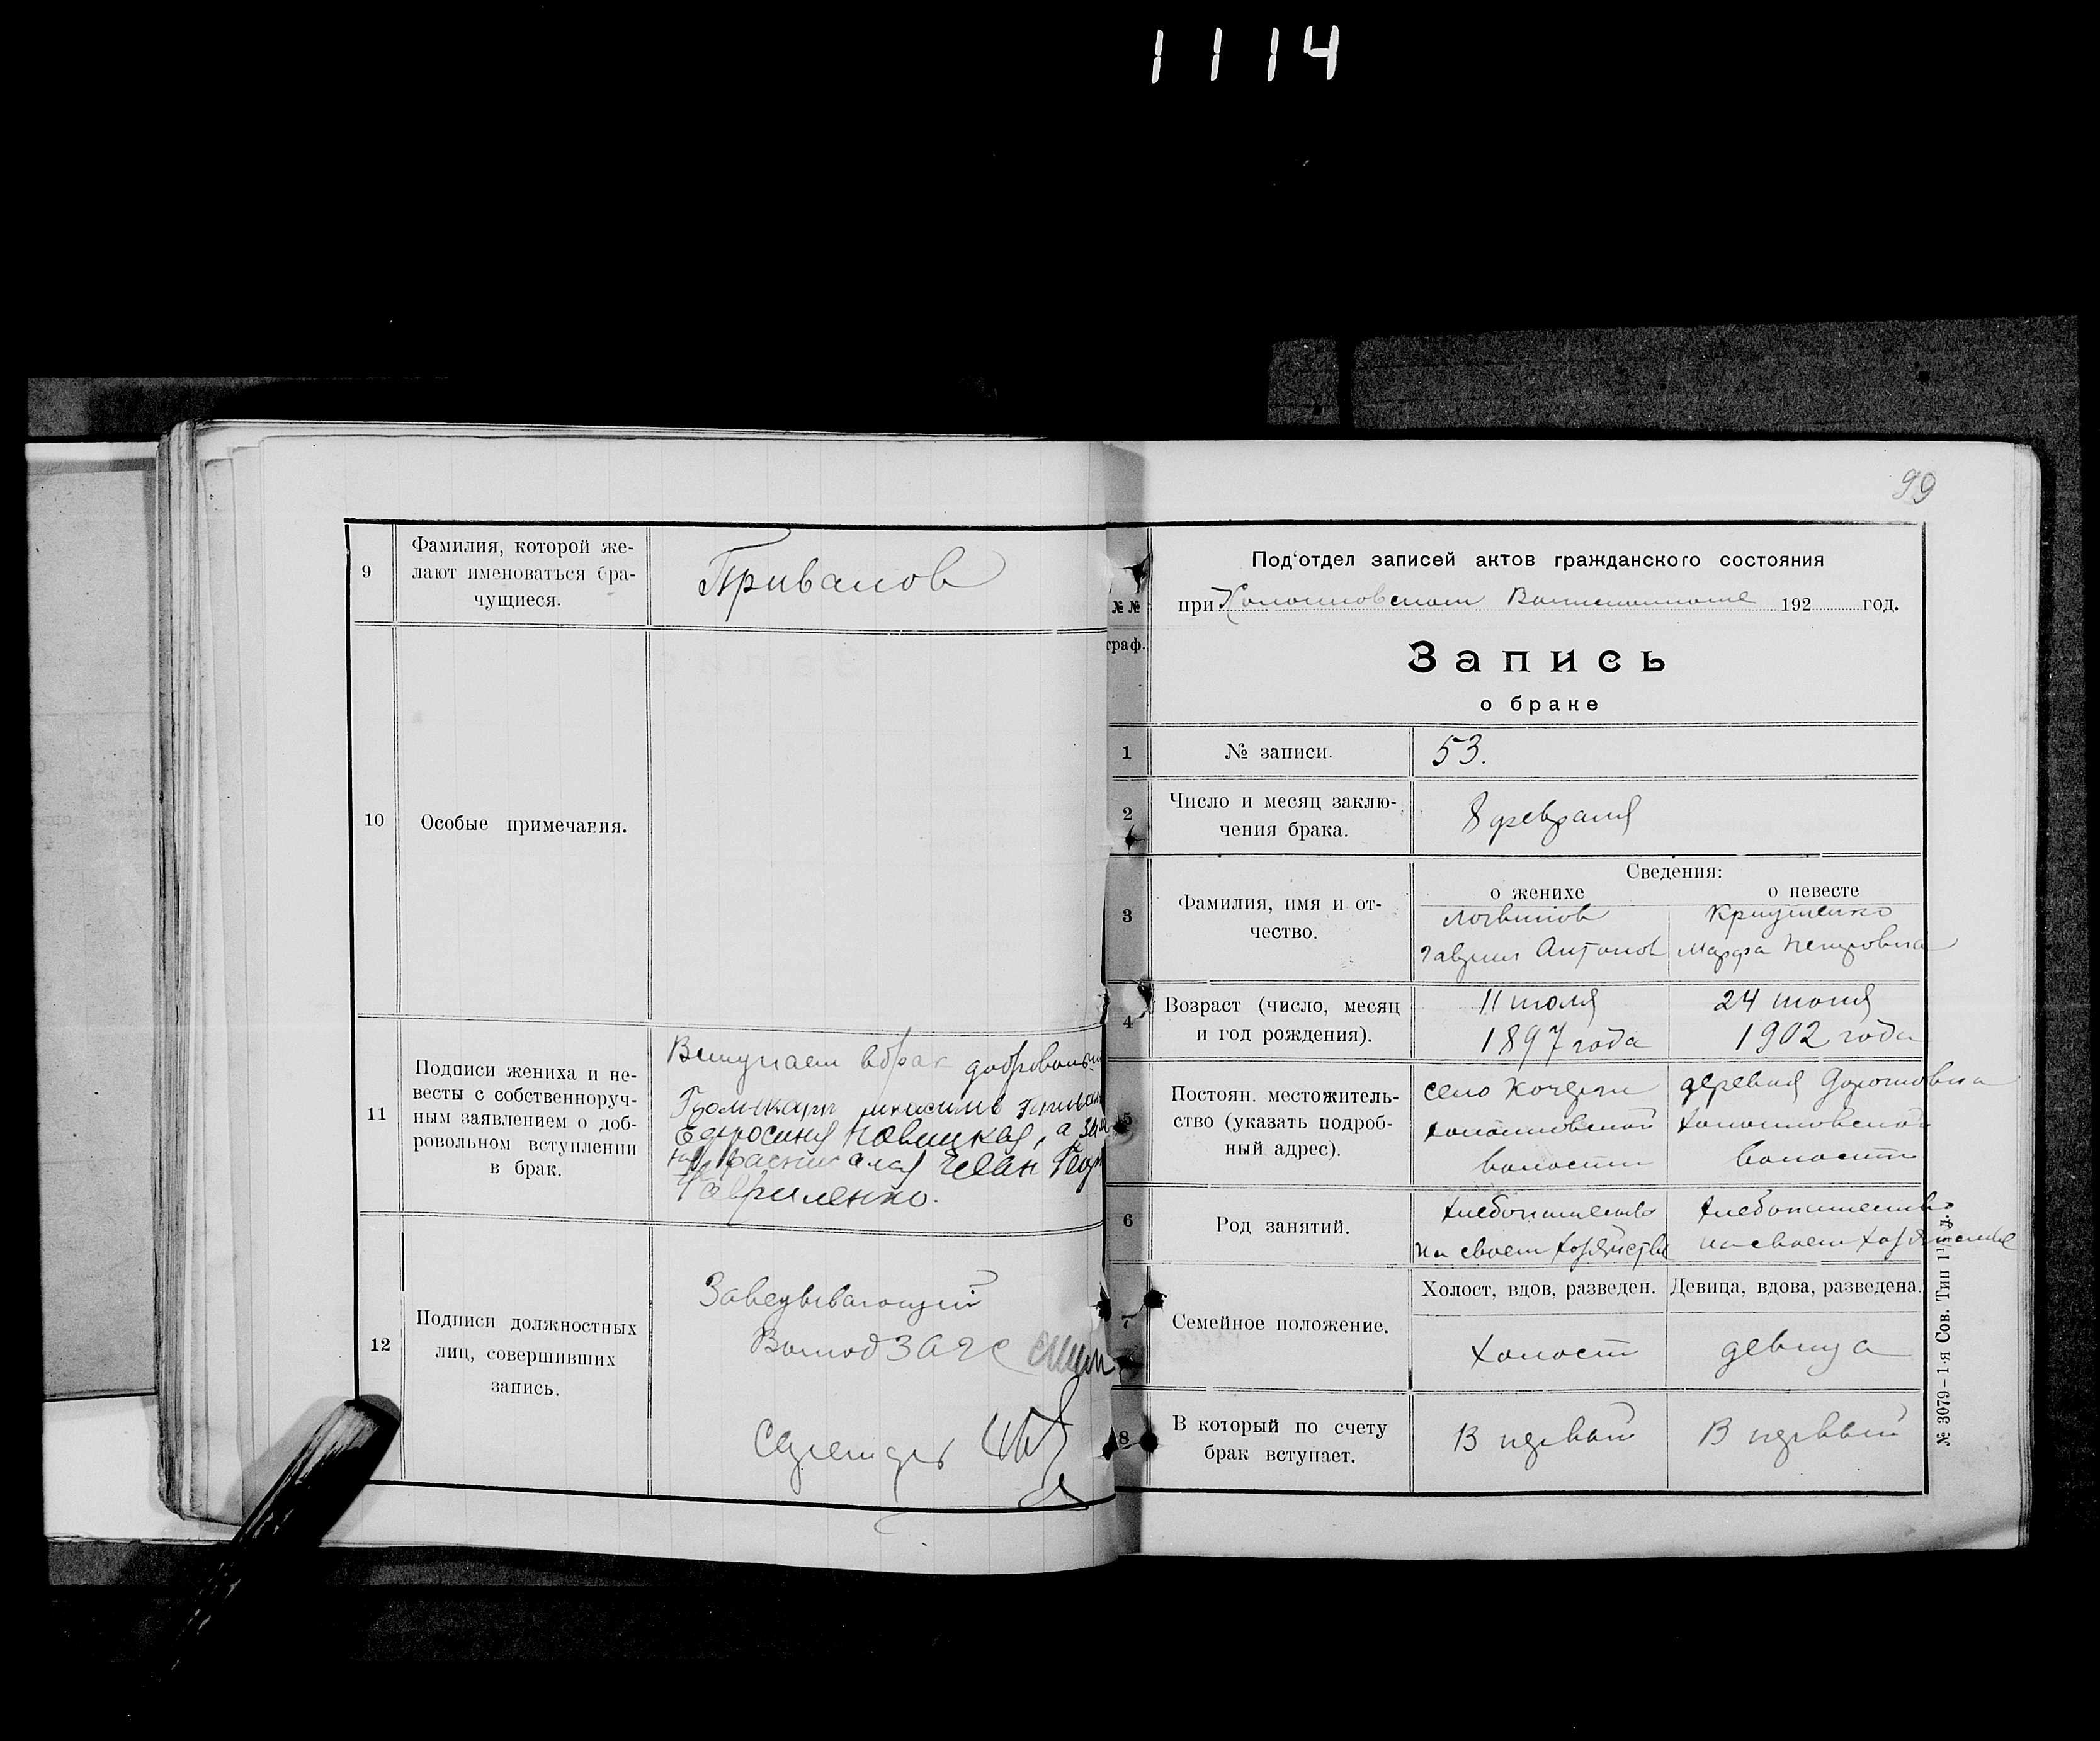 1114
9
Фамилия, которой же-
лают именоваться бра-
чущиеся.
Привалов
10
Особые примечания.
11
Подписи жениха и не-
весты с собственноруч-
ным заявлением о доб-
ровольном вступлении
в брак.
Вступаем в брак добровольн
Ефросиния Новицкая, а за
расписался Иван
Гавриленко.
12
Подписи должностных
лиц, совершивших
запись.
Заведывающий
ЗАГС
99
Под'отдел записей актов гражданского состояния
при 192 год.
№№
граф.
Запись
о браке
1
№ записи.
53.
2
Число и месяц заклю-
чения брака.
8 февраля
3
Фамилия, имя и от-
чество.
Сведения:
о женихе
о невесте
Логвинов
Гавриил Антонов
Марфа Петровна
4
Возраст (число, месяц
и год рождения).
11 июля
1897 года
24 июня
1902 года
5
Постоян. местожитель-
ство (указать подроб-
ный адрес).
село
волости
деревня
волости
6
Род занятий.
хлебопашество
на своем хозяйстве
хлебопашество
на своем хозяйстве
7
Семейное положение.
Холост, вдов, разведен.
Девица, вдова, разведена.
холост
девица
8
В который по счету
брак вступает.
В первый
В первый
№ 3079-1-я Сов. Тип